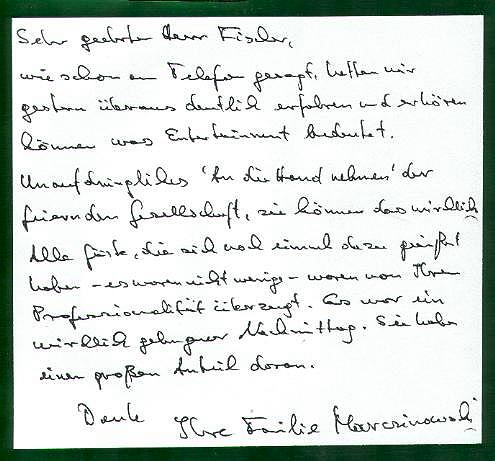 Sehr geehrter Herr Fischer,
wie schon am Telefon gesagt, hatten wir
gestern überaus deutlich erfahren und erhören
können was Entertainment bedeutet.
Unaufdringliches 'An die Hand nehmen' der
feiernden Gesellschaft, sie können das wirklich
Alle Gäste, die sich noch einmal dazu geäußert
haben - es waren nicht wenige - waren von Ihrer
Professionalität überzeugt. Es war ein
wirklich gelungener Nachmittag. Sie haben
einen großen Anteil daran.
Danke Ihre Familie